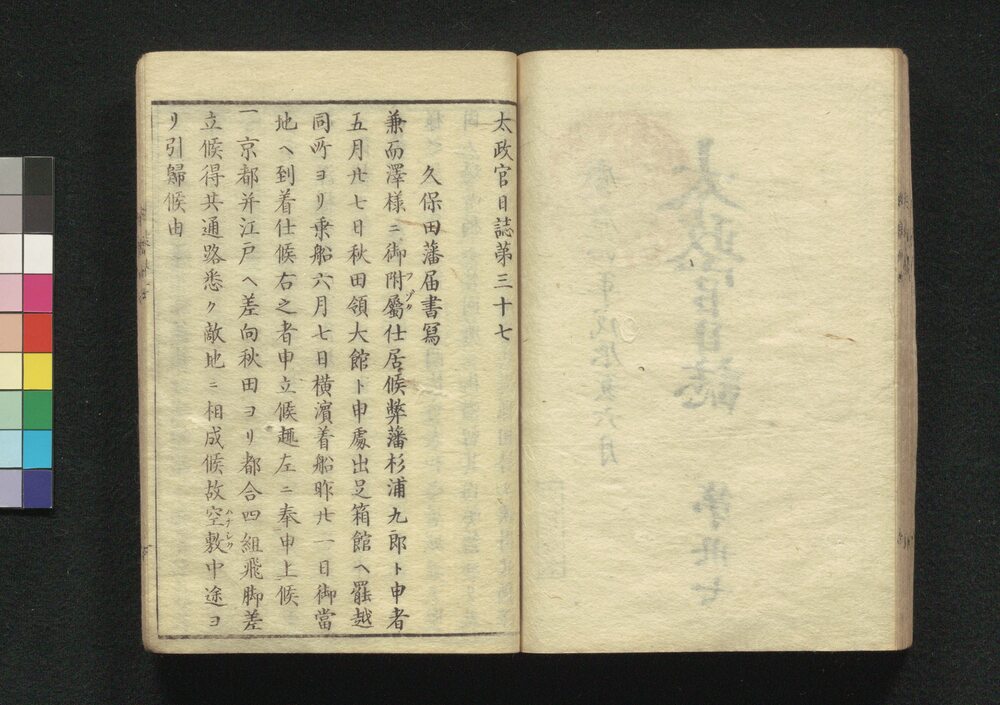 太政官日誌第三十七
久保田藩届書寫
兼而澤様ニ御附屬フゾク仕居候弊藩杉浦九郎ト申者
五月廿七日秋田領大館ト申處出足箱館ヘ罷越
同所ヨリ乗船六月七日横濱着船昨廿一日御當
地ヘ到着仕候右之者申立候趣左ニ奉申上候
一京都并江戸ヘ差向秋田ヨリ都合四組飛脚差
立候得共通路悉ク敵地ニ相成候故空敷ハナシク中途ヨ
リ引歸候由